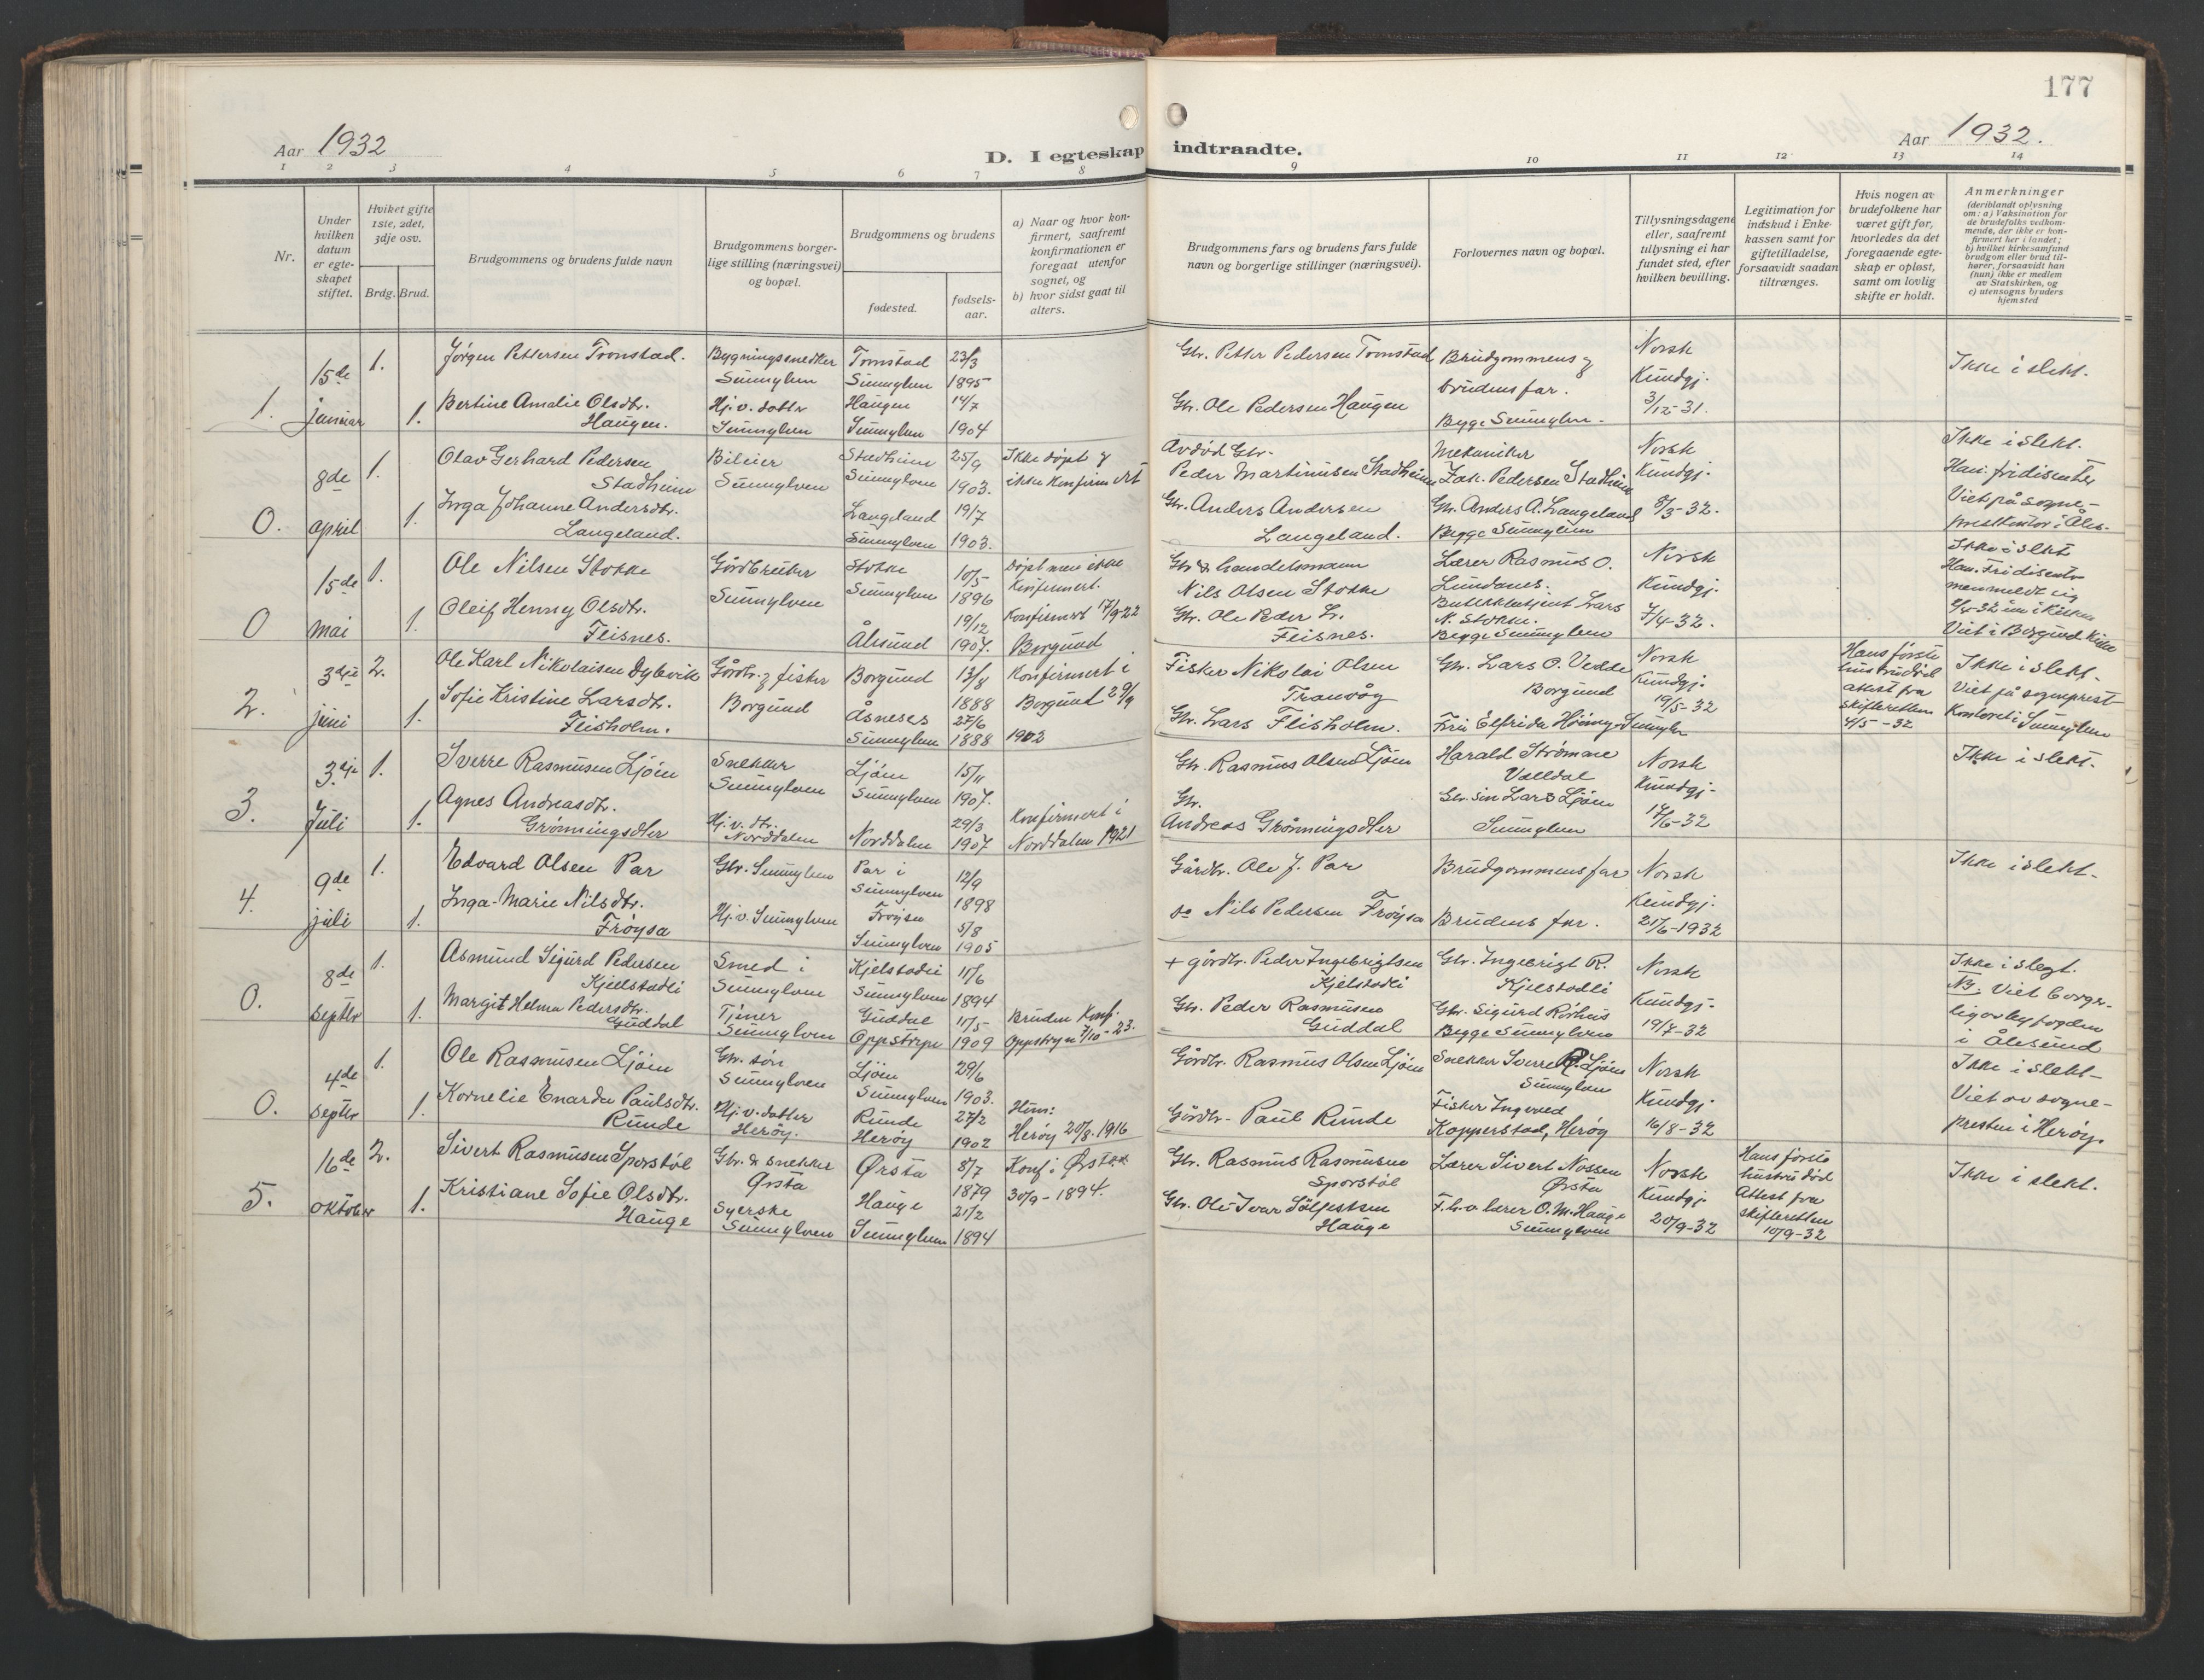 177
Aar 1932
D. I egteskap indtraadte.
Aar 1932.
1 2 3 4 5 6 7 8 9 10 11 12 13 14
Nr.
Under hvilken datum er egteskapet stiftet.
Hviket gifte 1ste, 2det, 3dje osv.
Brdg. Brud.
Brudgommens og brudens fulde navn
Brudgommens borgerlige stilling (næringsvei) og bopæl.
Brudgommens og brudens
fødested.
fødselsaar.
a) Naar og hvor konfirmert, saafremt konfirmationen er foregaat utenfor sognet, og
b) hvor sidst gaat til alters.
Brudgommens fars og brudens fars fulde navn og borgerlige stillinger (næringsvei).
Forlovernes navn og bopæl.
Tillysningsdagene eller, saafremt tillysning ei har fundet sted, efter hvilken bevilling.
Legitimation for indskud i Enkekassen samt for giftetilladelse, forsaavidt saadan tiltrænges.
Hvis nogen av brudefolkene har været gift før, hvorledes da det foregaaende egteskap er opløst, samt om lovlig skifte er holdt.
Anmerkninger (deriblandt oplysning om: a) Vaksination for de brudefolks vedkommende, der ikke er konfirmert her i landet; b) hvilket kirkesamfund brudgom eller brud tilhører, forsaavidt han (hun) ikke er medlem av Statskirken, og c) utensogns bruders hjemsted
1. 15de januar 1. 1.
Jørgen Pettersen Tronstad.
Bertine Amalie Olsdtr. Haugen.
Bygningssnedker Sunnylven
Hj. v. datter Sunnylven
Tronstad Sunnylven 23/3 1895
Haugen Sunnylven 14/7 1904
Gbr. Petter Pedersen Tronstad
Gbr. Ole Pedersen Haugen
Brudgommens og brudens far.
Begge Sunnylven.
Norsk Kundgj. 3/12-31.
Ikke i slekt.
0. 8de april 1. 1.
Olav Gerhard Pedersen Stadheim
Inga Johanne Andersdtr. Langeland.
Bileier Sunnylven
Stadheim Sunnylven 25/9 1903.
Langeland Sunnylven 19/7 1903.
Ikke døpt og ikke konfirmert
Avdød Gbr. Peder Martinusen Stadheim
Gbr. Anders Andersen Langeland.
Mekaniker Jak. Pedersen Stadheim
Gbr. Anders A. Langeland
Begge Sunnylven
Norsk Kundgj. 8/3-32.
Ikke i slekt.
Han fridisenter
Viet på sogneprestkontor i Åles.
0 15de mai 1. 1.
Ole Nilsen Stokke
Oleif Henny Olsdtr. Flisnes.
Gårdbruker Sunnylven
Stokke Sunnylven 10/5 1896
Ålesund 19/12 1907.
Døpt men ikke Konfirmert.
Konfirmert 17/9-22 Borgund
Gbr & handelsmann Nils Olsen Stokke
Gbr. Ole Peder L. Flisnes.
Lærer Rasmus O. Lundanes.
Lars N. Stokke.
Begge Sunnylven
Norsk Kundgj. 7/4-32.
Ikke i slekt
Han Fridisenter
men meldt sig
inn i Kirken
Viet i Borgund Kirke
2. 3dje juni 2. 1.
Ole Karl Nikolaisen Dybvik
Sofie Kristine Larsdtr. Flisholm.
Gårdbr. og fisker Borgund
Borgund 13/8 1888
Åsneset Sunnylven 27/6 1888
Konfirmert i Borgund 29/9 1902
Fisker Nikolai Olsen Tranvåg
Gbr. Lars Flisholm.
Gbr. Lars O. Vedde Borgund
Fru Elfrida Sunnylv
Norsk Kundgj. 19/5-32
Hans første hustru død
attest fra skifteretten 4/5-32
Ikke i slekt.
Viet på sogneprestkontoret i Sunnylven
3. 3dje Juli 1. 1.
Sverre Rasmusen Ljøen
Agnes Andreasdtr. Grønningsæter
Snekker Sunnylven
Hj. v. dtr. Norddalen
Ljøen Sunnylven 15/11 1907.
Norddalen 29/3 1907
Konfirmert i Norddalen 1921
Gbr. Rasmus Olsen Ljøen
Gbr. Andreas Grønningsæter
Harald Strømme Valldal
Gbr. sin Lars Ljøen Sunnylven
Norsk Kundgj. 17/6-32
Ikke i slekt.
4. 9de juli 1. 1.
Edvard Olsen Par
Inga-Marie Nilsdtr. Frøysa
Gbr. Sunnylven
Hj. v. Sunnylven
Par i Sunnylven 12/9 1898
Frøysa Sunnylven 5/8 1905
Gårdbr. Ole J. Par
do Nils Pedersen Frøysa
Brudgommens far
Brudens far.
Norsk Kundgj. 21/6-1932
Ikke i slekt.
0. 8de septbr 1. 1.
Asmund Sigurd Pedersen Kjellstadli
Margit Helma Pedersdtr. Guddal
Smed i Sunnylven
Tjener Sunnylven
Kjelstadli Sunnylven 11/6 1894
Guddal Oppstryn 11/5 1909
Bruden Konf. Oppstryn 7/10-23.
+ gårdbr. Peder Ingebrigtsen Kjelstadli
Gbr. Peder Rasmusen Guddal
Gbr. Ingebrigt R. Kjelstadli
Gbr. Sigurd Rørhus
Begge Sunnylven
Norsk Kundgj. 19/7-32
Ikke i slegt.
NB. Viet borgerlig av byfogden i Ålesund
0. 4de septbr 1. 1.
Ole Rasmusen Ljøen
Kornelie Enarda Paulsdtr. Runde
Gbr. søn Sunnylven
Hj. v. datter Herøy.
Ljøen Sunnylven 29/6 1903.
Runde Herøy 27/2 1902
Hun: Herøy 20/8.1916
Gårdbr. Rasmus Olsen Ljøen
Gårdbr. Paul Runde
Snekker Sverre R. Ljøen Sunnylven
Fisker Ingvard Kopperstad, Herøy
Norsk Kundgj 16/8-32
Ikke i slekt-
Viet av sognepresten i Herøy.
5. 16de oktober 2. 1.
Sivert Rasmusen Sporstøl
Kristiane Sofie Olsdtr. Hauge
Gbr. & snekker Ørsta
Syerske Sunnylven
Ørsta 8/7 1879
Hauge Sunnylven 21/2 1894
Konf i Ørsta 30/9-1894.
Gbr. Rasmus Rasmusen Sporstøl
Gbr. Ole Ivar Sylfestsen Hauge
Lærer Sivert Nossen Ørsta
F. h. v. lærer O. M. Hauge Sunnylven
Norsk Kundgj. 20/9-32
Hans første hustru død
Attest fra skifteretten 10/9-32
Ikke i slekt.